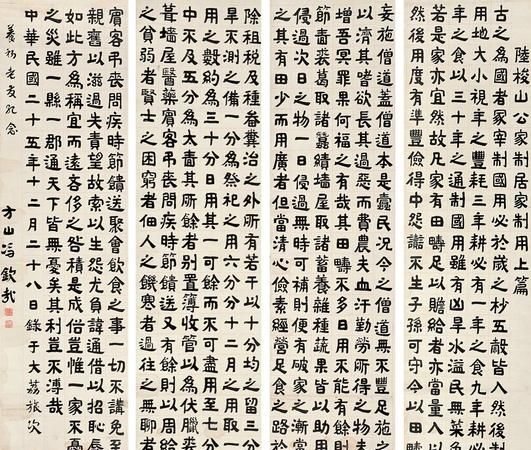 陸梭山公家制居家制用上篇
古之為國者冢宰制國用必於歲之杪五穀皆入然後制
用地大小視年之豐耗三年耕必有一年之食九年耕必
有三年之食以三十年之通制國用雖有凶旱水溢民無菜色
若是家亦宜然故凡家有田疇足以贍給者亦當量入以
然後用度有準豐儉得中怨讟不生子孫可守今以田疇
妄施蓋僧道本是蠹民況今之僧道無不豐足施之
以濟其嗜欲長其過惡而費農夫血汗勤勞所得之物
增吾冥罪果何福之有哉其田疇不多日用不能有餘
節嗇裘葛取諸蠶績墻屋取諸蓄養雜種蔬果皆以助用
侵過次日之物一日侵過無時可補則便有破家之漸當
之其有田少而用廣者但當清心儉素經營足食之路於
除租稅及種蓋糞治之外所有若干以十分均之留三分
旱不測之備一分為祭祀之用六分分十二月之用取一
之數約為三十分日用其一可餘而不可盡用至七分
中不及五分為太嗇其所餘者別置簿收管以為伏臘裘
葺墻屋醫藥賓客弔喪問疾時節饋送又有餘則以周給
之貧弱者賢士之困窮者佃人之饑寒者過往之無聊者
賓客弔喪問疾時節饋送聚會飲食之事一切不講免至
親舊以滋過失責望故索以生怨尤負諱通借以招恥辱
如此方為稱宜而遠吝侈之咎積是成俗豈惟一家不憂
之災雖一縣一郡通天下皆無憂矣其利豈不溥哉
中華民國二十五年十二月二十八日錄于大荔旅次
義初老友紀念
方山馮欽哉